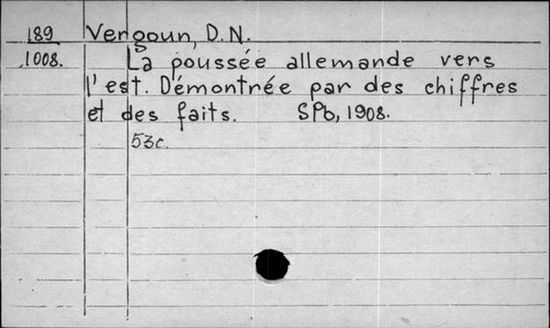 189 Vergoun, D.N.
1008. La poussée allemande vers
l'est. Démontrée par des chiffres
et des faits. SPb, 1908.
53c.